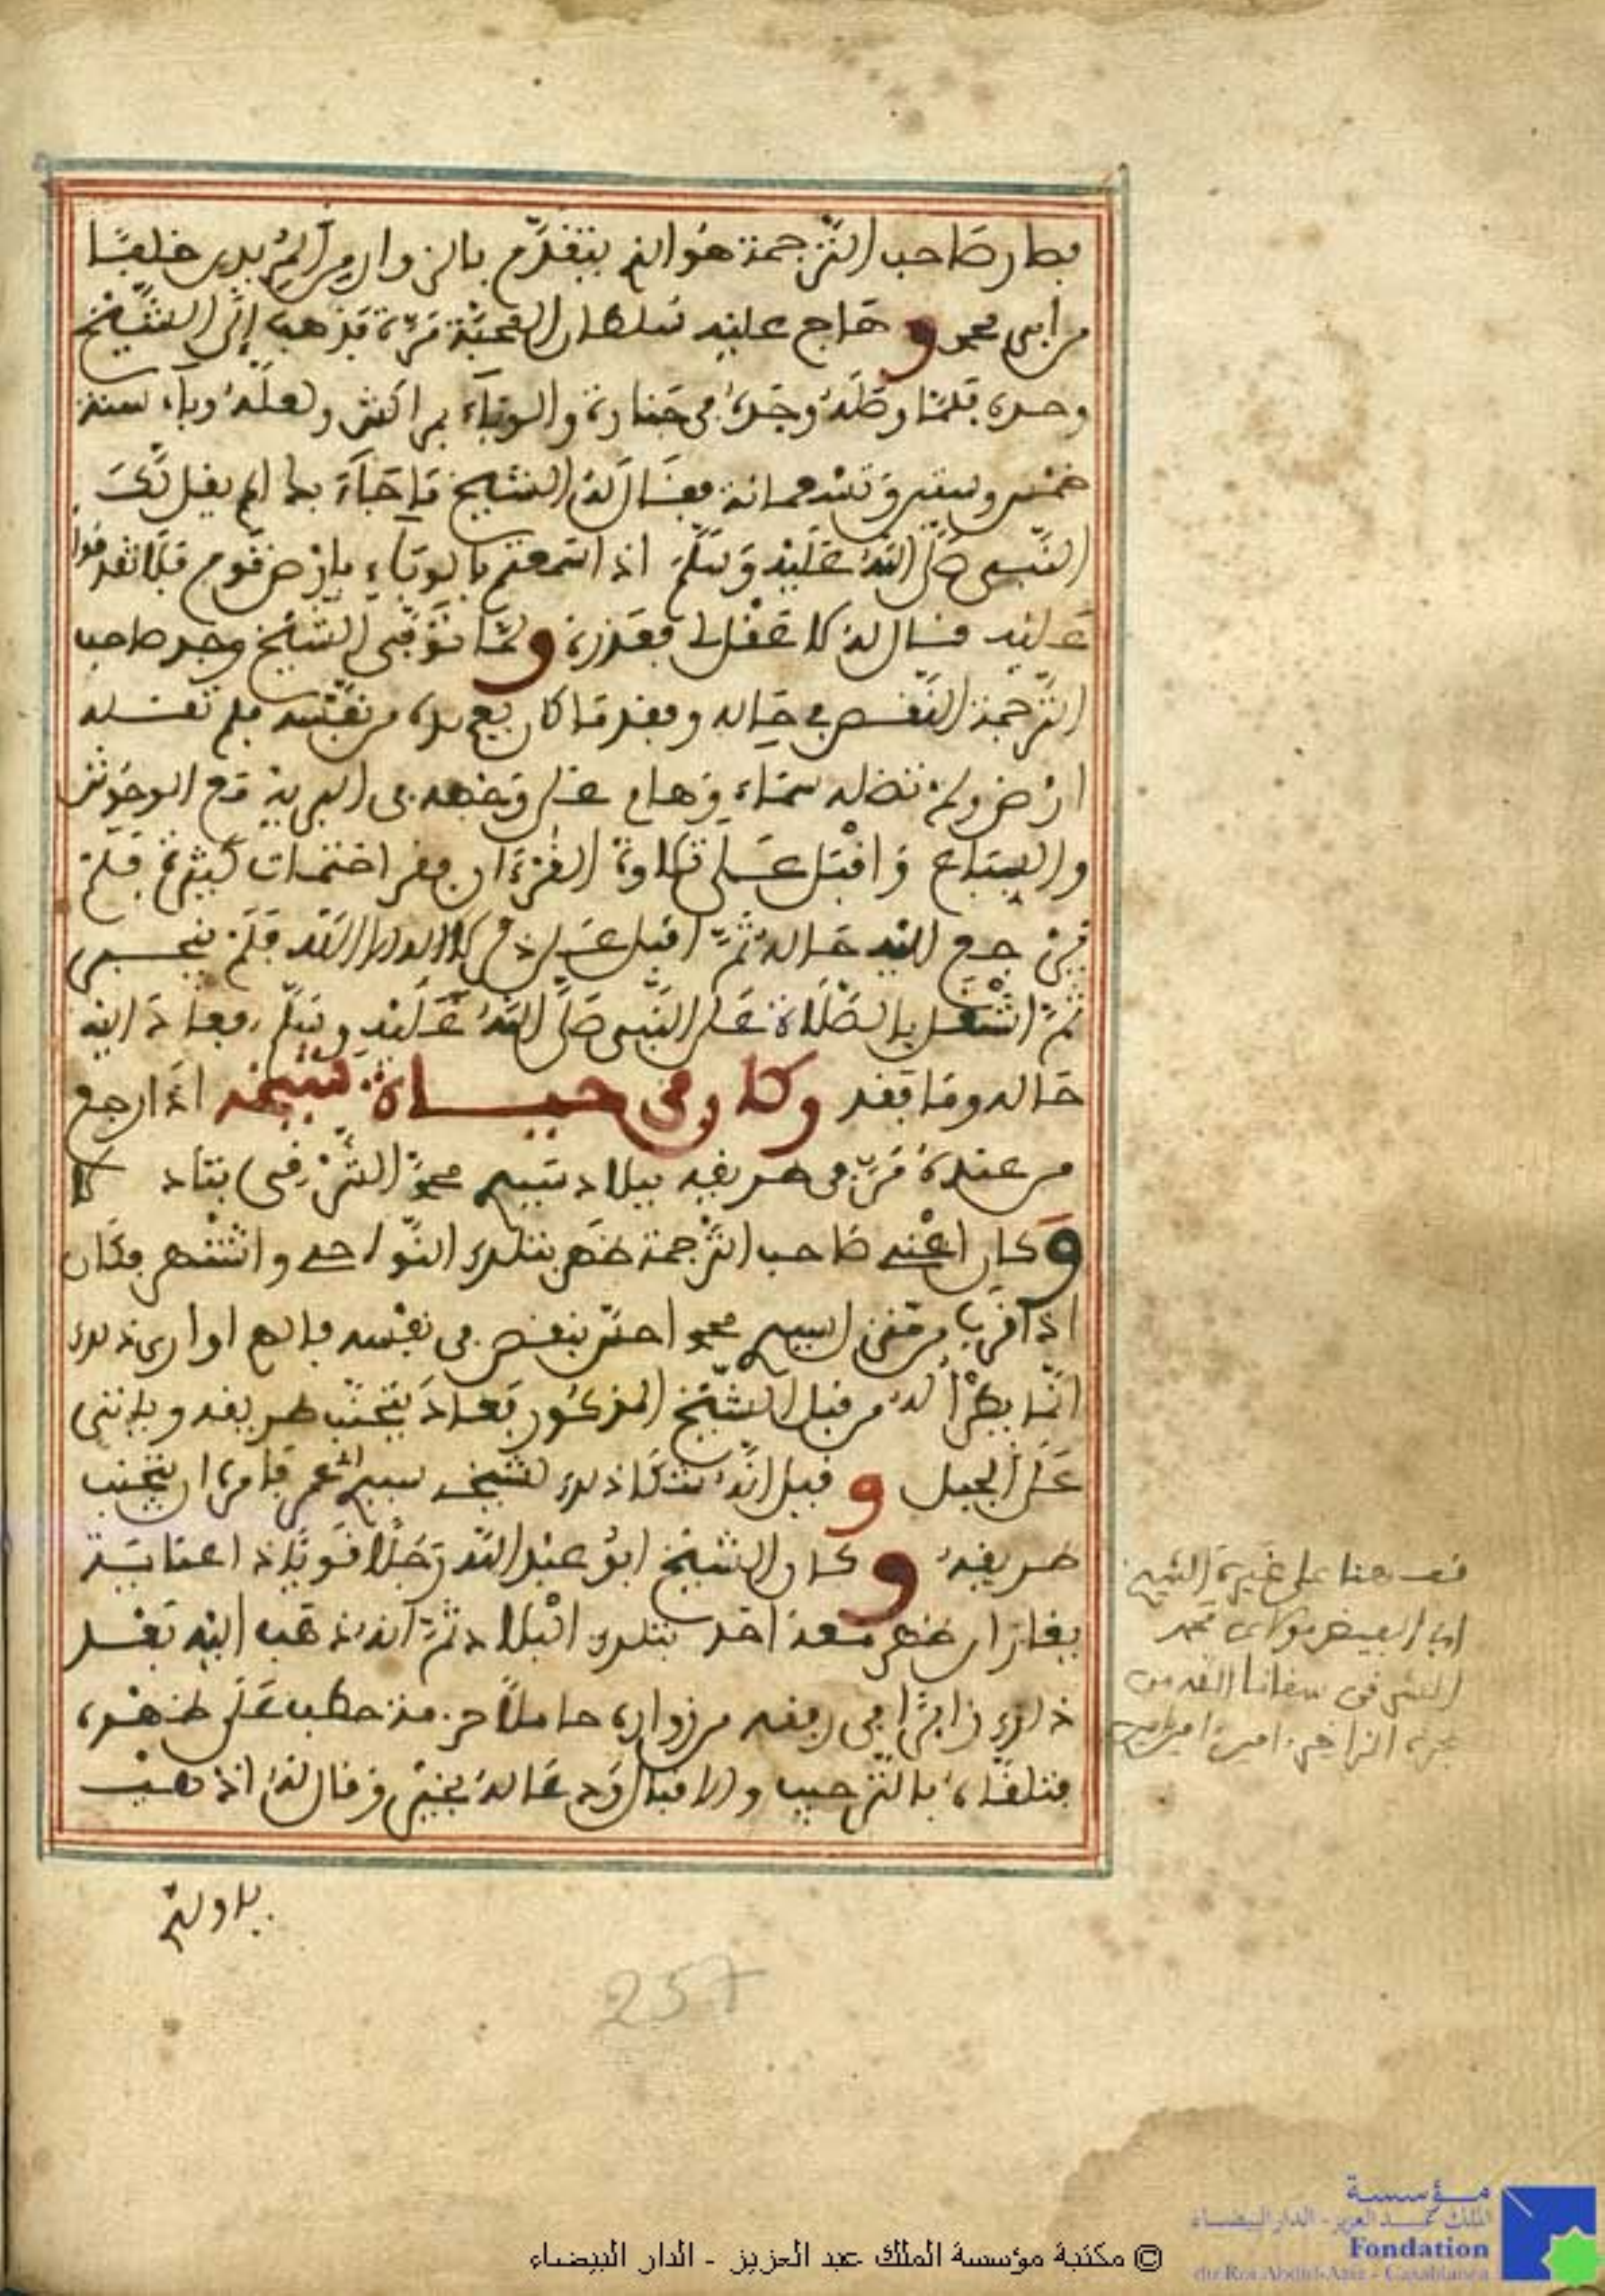 فصار صاحب الترجمة هو الذي يتقدم بالزوار من المريدين خلفا
من ابي محمد وهاج عليه سلطان المحبة مرة فذهب إلى الشيخ
وحده فلما وصله وجده في جنازة والوباء بمراكش ولعله وباء سنة
خمس وستين وتسعمائة فقال له الشيخ ما جاء بك الم يقل لك
النبي صلى الله عليه وسلم اذا سمعتم بالوباء بارض قوم فلا تقدموا
عليه فقال له لا عقل لي فعذره ولما توفي الشيخ وجد صاحب
الترجمة النقص في حاله وفقد ما كان يعهده من نفسه فلم تقله
ارض ولم تظله سماء وهام على وجهه في البرية مع الوحوش
والسباع واقبل على تلاوة القرءان فقرا ختمات كثيرة فلم
يرجع اليه حاله ثم اقبل على ذكر لا اله الا الله فلم ينجبر
ثم اشتغل بالصلاة على النبي صلى الله عليه وسلم فعاد اليه
حاله وما فقد وكان في حياة شيخه اذا رجع
من عنده مر في طريقه ببلاد سيدي محمد الشرقي بتادلا
وكان اعني صاحب الترجمة ظهر بتلك النواحي واشتهر فكان
اذا قرب من سيدي محمد احس بنقص في نفسه فالهم او ارى ذلك
انما يطرأ له من قبل الشيخ المذكور فعاد يتجنب طريقه وياتي
على الجبل وقيل انه شكا ذلك لشيخه سيدي عمر فامره ان يتجنب
طريقه وكان الشيخ ابو عبد الله رجلا قويا ذا عناية
يقال ان ظهر معه احد بتلك البلاد ثم انه ذهب اليه بعد
ذلك زائرا في رفقة من زواره حاملا حزمة حطب على ظهره
فتلقاه بالترحيب والاقبال ودعا له بخير وقال له اذهب
قف هنا على غيرة الشيخ
ابي الفيض مولاي محمد
الشرقي سقانا الله من
بحره الزاخر امين امين
بلا ولي
257
© مكتبة مؤسسة الملك عبد العزيز - الدار البيضاء
مؤسسة
الملك عبد العزيز - الدار البيضاء
Fondation
du Roi Abdul-Aziz - Casablanca